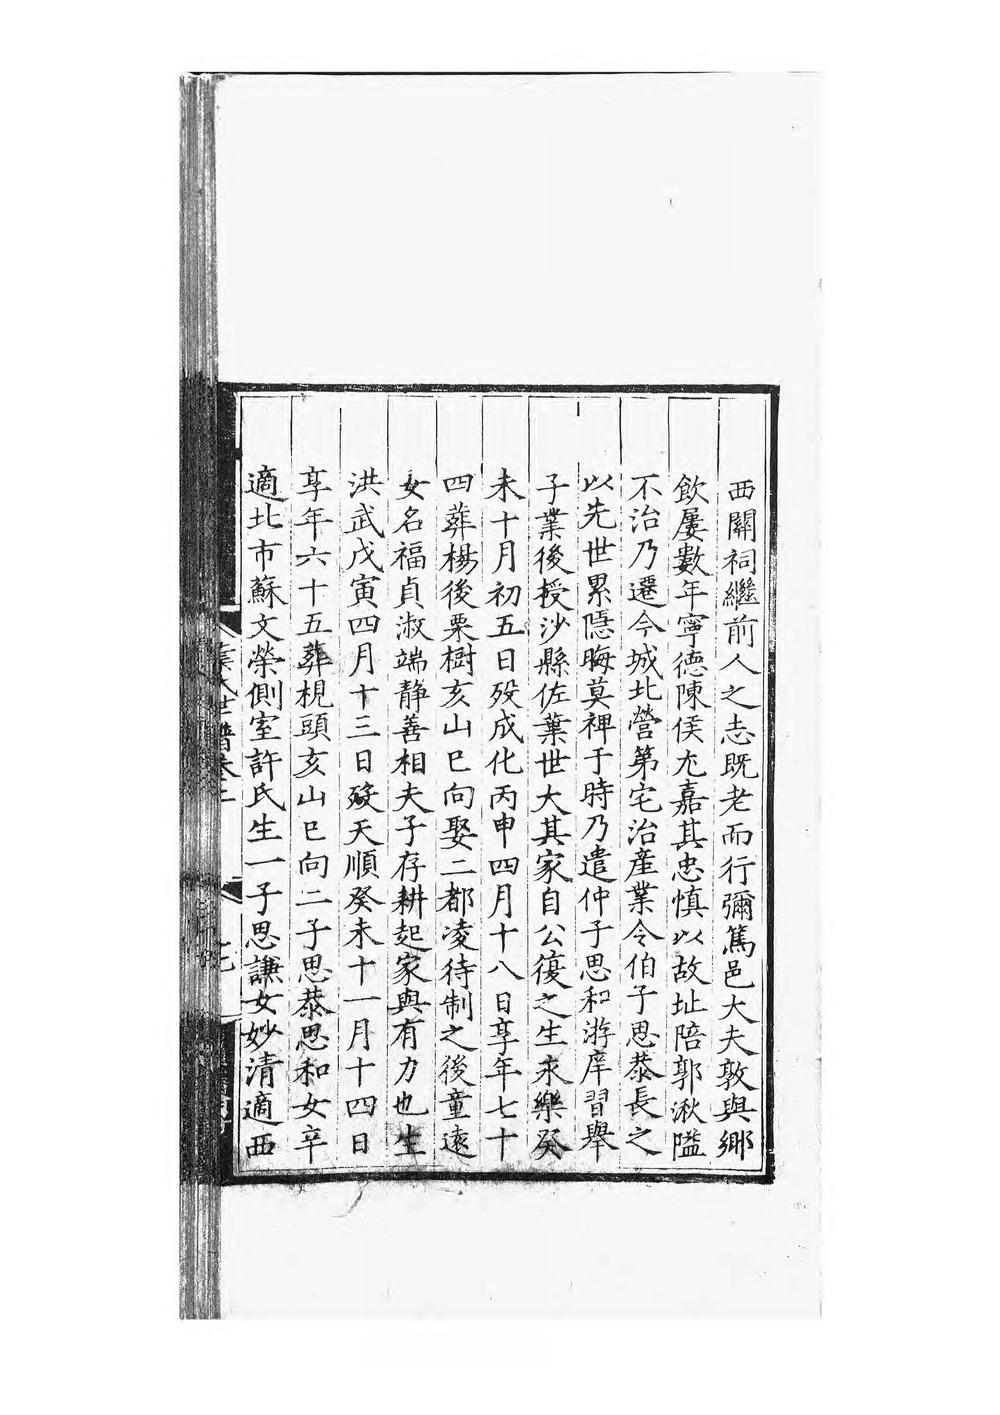 西關祠繼前人之志既老而行彌篤邑大夫敦與鄉
飲屢數年寧德陳侯尤嘉其忠慎以故址陪郭湫隘
不治乃遷今城北營第宅治產業令伯子思恭長之
以先世累隱晦莫裨于時乃遣仲子思和游庠習舉
子業後授沙縣佐葉世大其家自公復之生永樂癸
未十月初五日歿成化丙申四月十八日享年七十
四葬楊後栗樹亥山巳向娶二都凌待制之後童遠
女名福貞淑端靜善相夫子存耕起家與有力也生
洪武戊寅四月十三日歿天順癸未十一月十四日
享年六十五葬梘頭亥山巳向二子思恭思和女辛
適北市蘇文榮側室許氏生一子思謙女妙清適西
葉氏世譜卷三